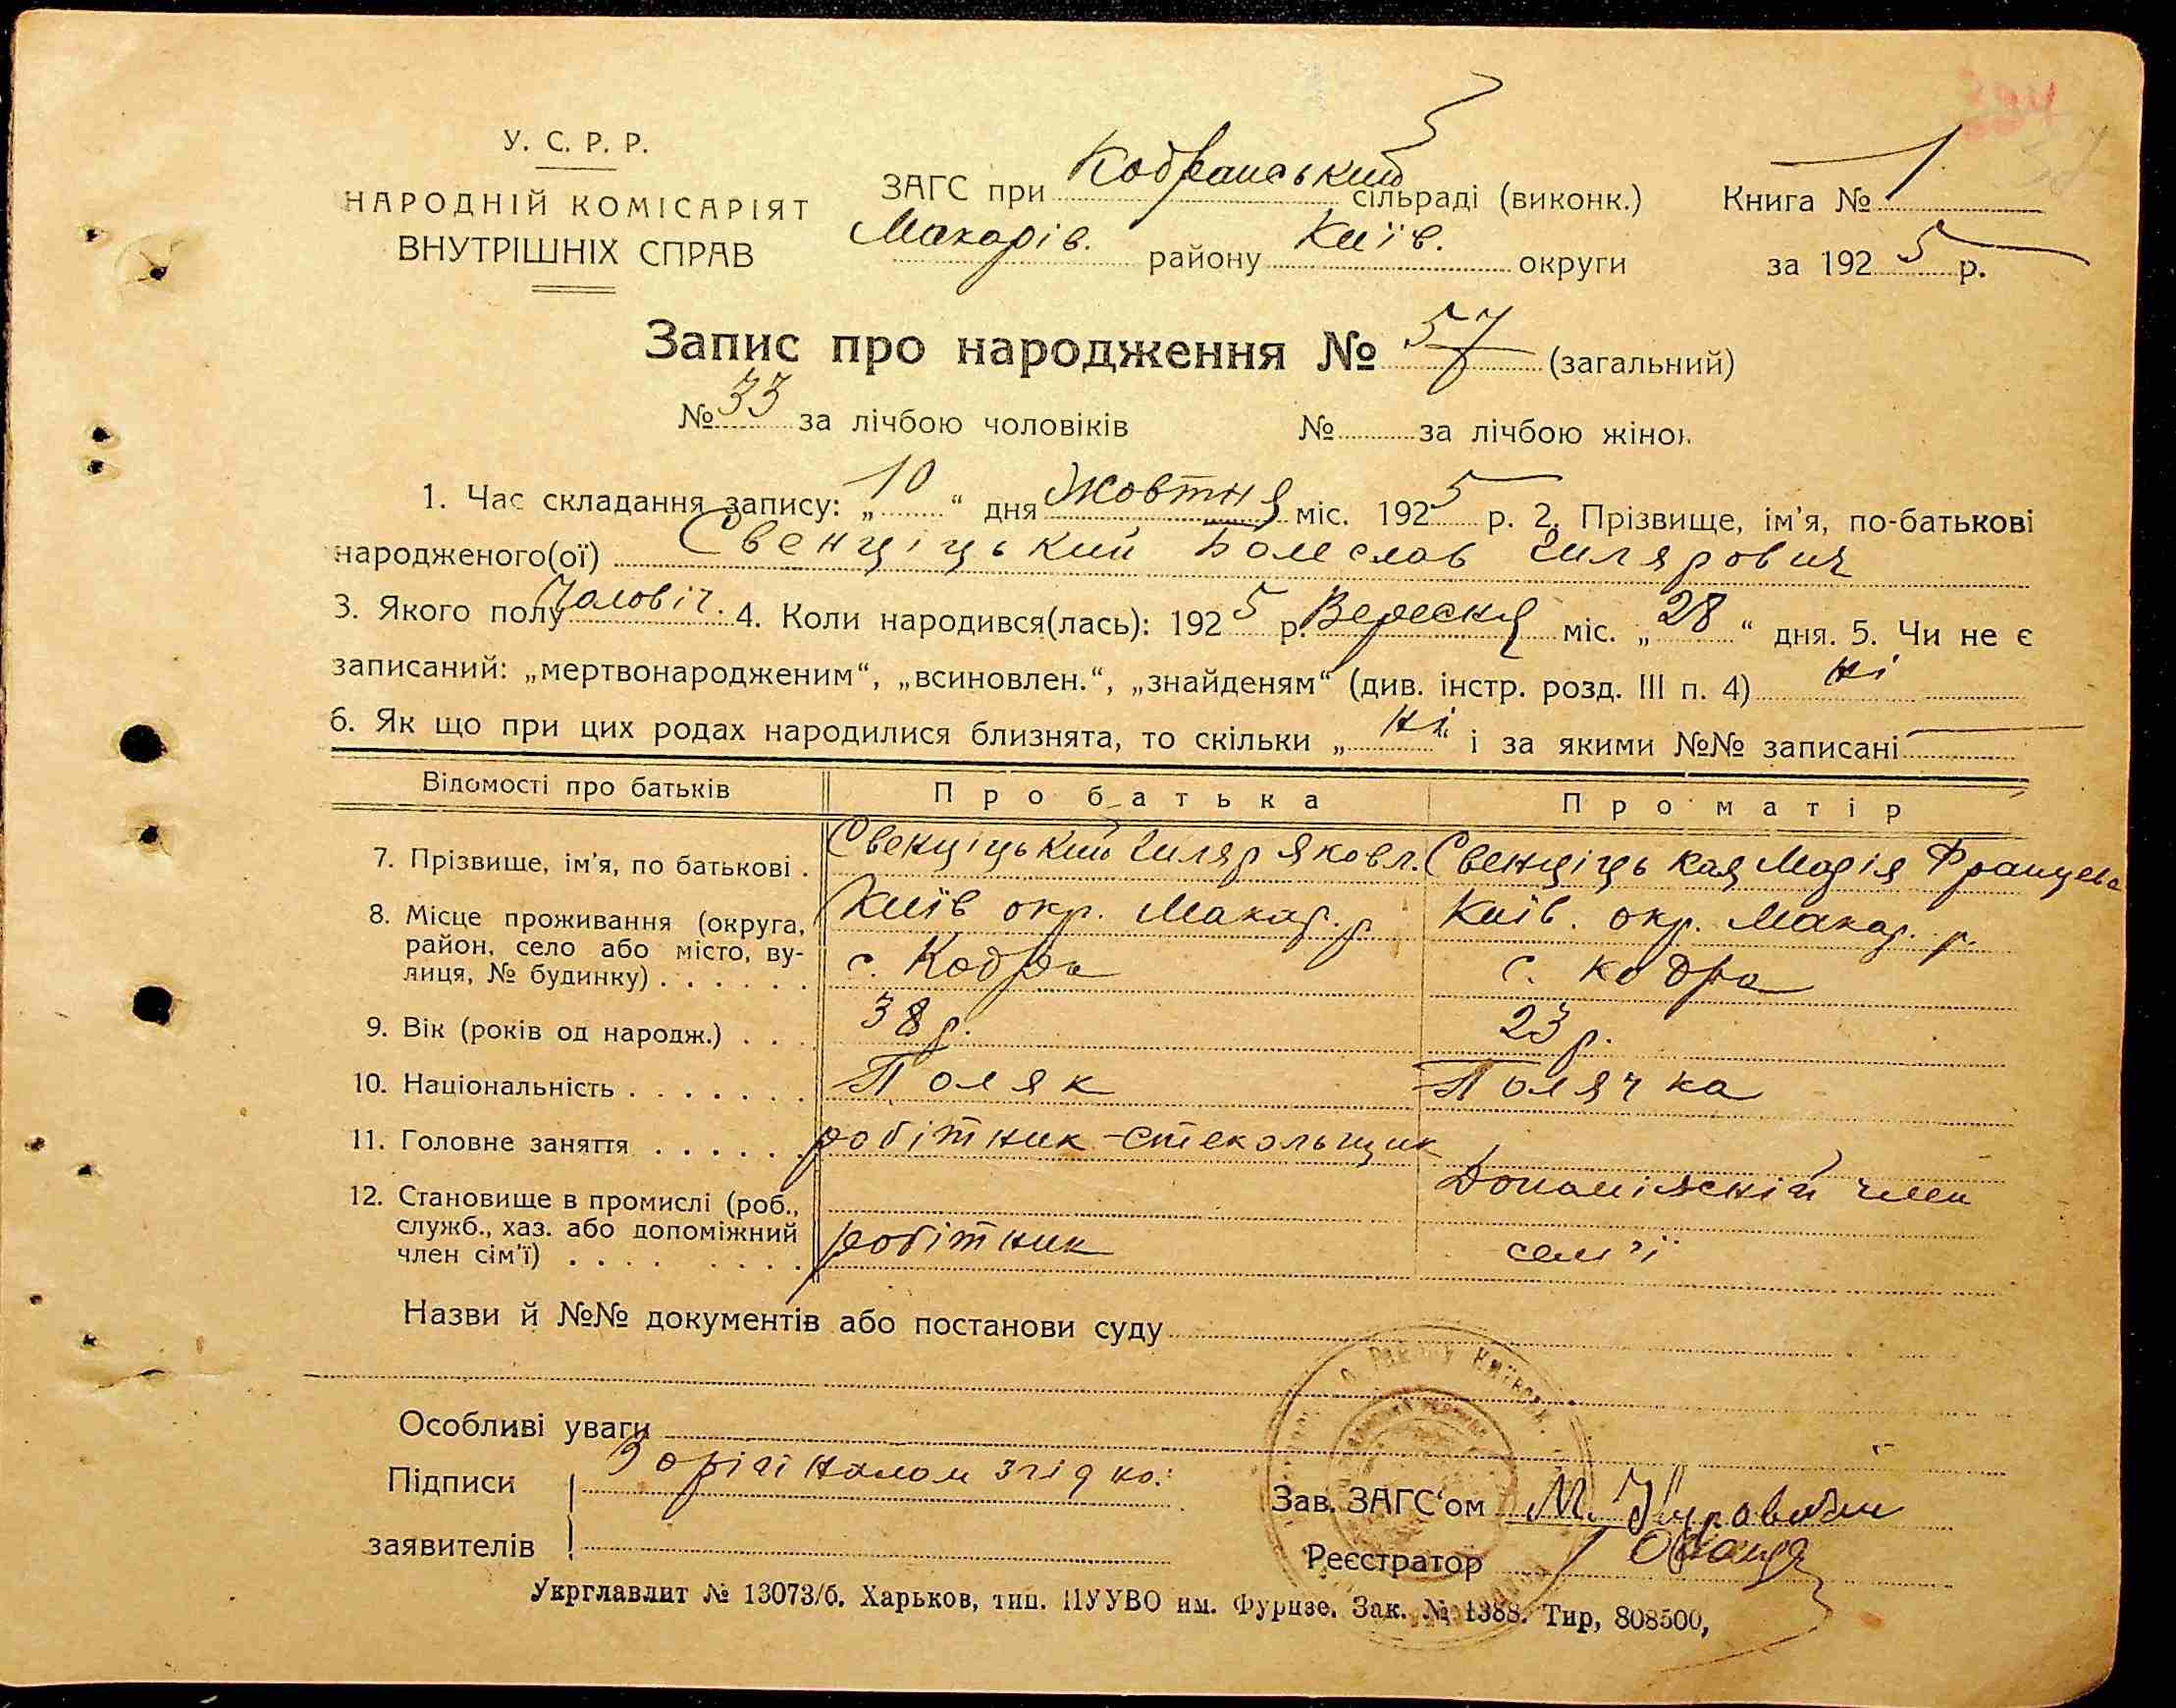 У. С. Р. Р.
НАРОДНІЙ КОМІСАРІЯТ
ВНУТРІШНІХ СПРАВ
ЗАГС при Кодранський сільраді (виконк.)
Макарів. району Київ. округи
Книга № 1
за 192 5 р.
Запис про народження № 57 (загальний)
№ 33 за лічбою чоловіків № за лічбою жінок
1. Час складання запису: „ 10 “ дня Жовтня міс. 192 5 р. 2. Прізвище, ім'я, по-батькові
народженого(ої) Свенціцький Болеслав Гилярович
3. Якого полу Чоловіч. 4. Коли народився(лась): 192 5 р. Вересня міс. „ 28 “ дня. 5. Чи не є
записаний: „мертвонародженим“, „всиновлен.“, „знайденям“ (див. інстр. розд. III п. 4) ні
6. Як що при цих родах народилися близнята, то скільки „ ні “ і за якими №№ записані
Відомості про батьків Про батька Про матір
7. Прізвище, ім'я, по батькові . Свенціцький Гиляр Яковл. Свенціцькая Марія Францевa
8. Місце проживання (округа, Київ окр. Макар. р. Київ. окр. Макар. р.
район, село або місто, ву- с. Кодра с. Кодра
лиця, № будинку) . . . . . .
9. Вік (років од народж.) . . . 38 р. 23 р.
10. Національність . . . . . . . Поляк Полячка
11. Головне заняття . . . . . . робітник-стекольщик
12. Становище в промислі (роб., Допоміжній член
служб., хаз. або допоміжний робітник сем'ї
член сім'ї) . . . . . . . .
Назви й №№ документів або постанови суду
Особливі уваги
Підписи З орігіналом згідно:
заявителів
Зав. ЗАГС'ом М.
Реєстратор
Укрглавлит № 13073/б. Харьков, тип. ПУУВО им. Фрунзе. Зак. № 1388. Тир, 808500,